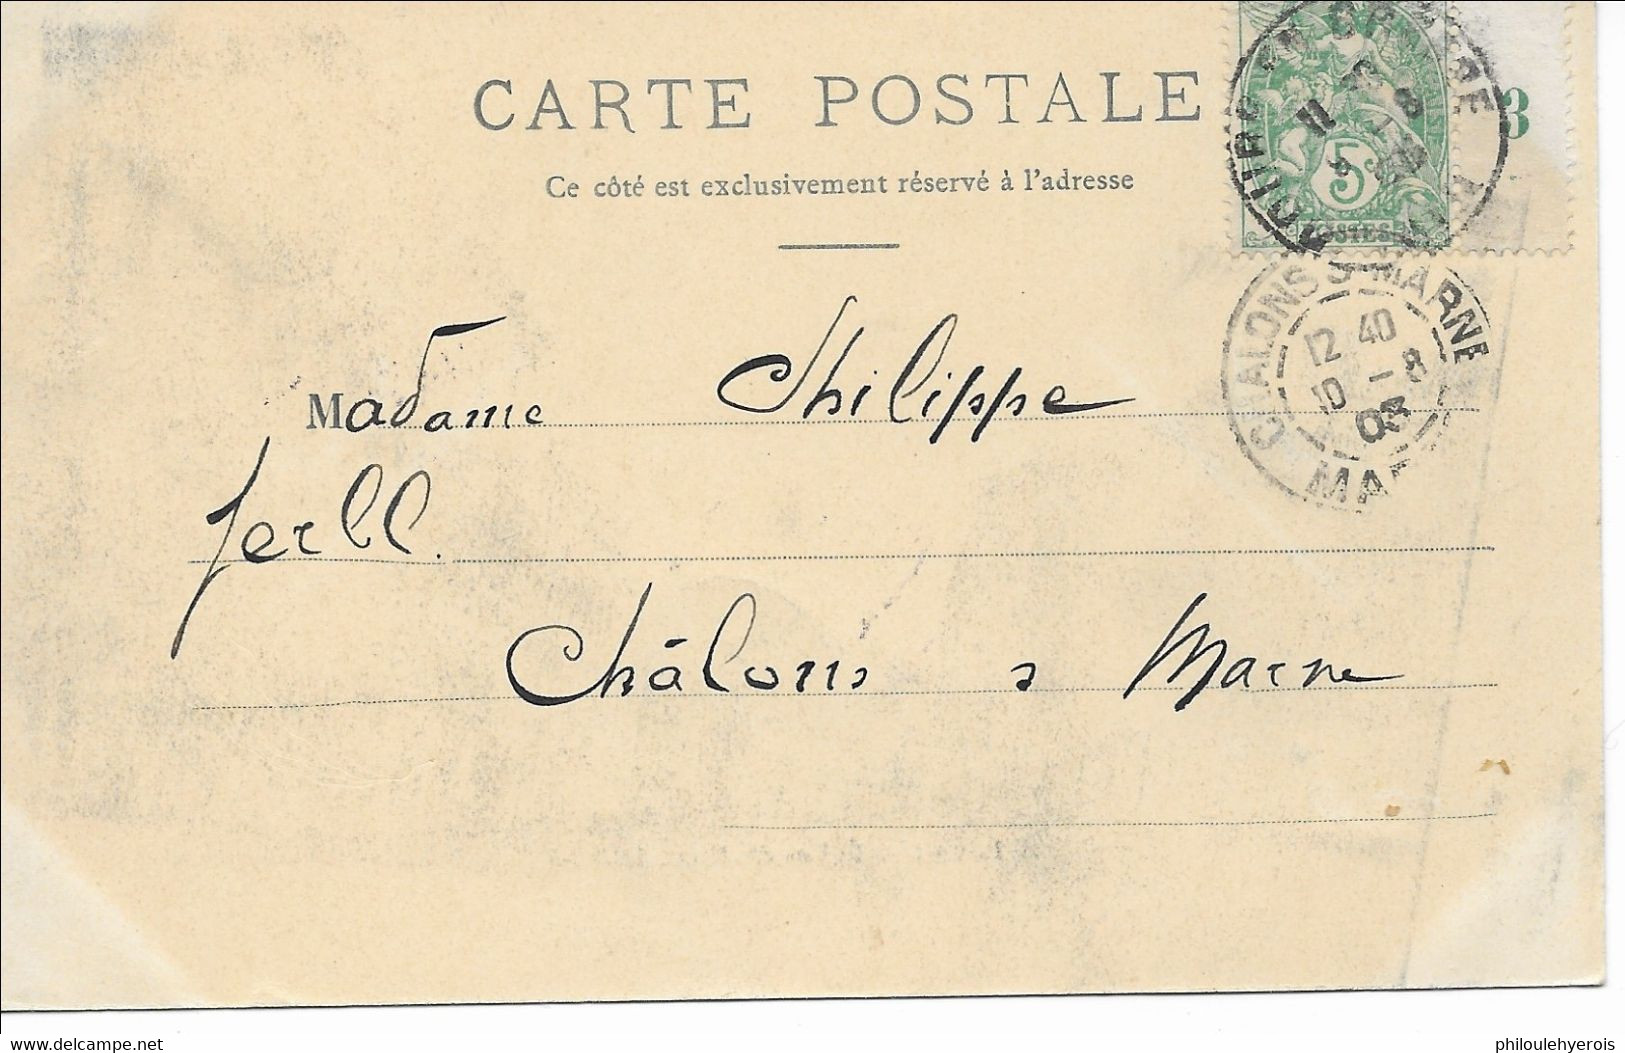 CARTE POSTALE
Ce côté est exclusivement réservé à l'adresse
3
5
POSTES
CHALONS S MARNE
12 40
10 - 8
03
Madame Philippe
ferll.
Châlons s Marne
www.delcampe.net
philoulehyerois